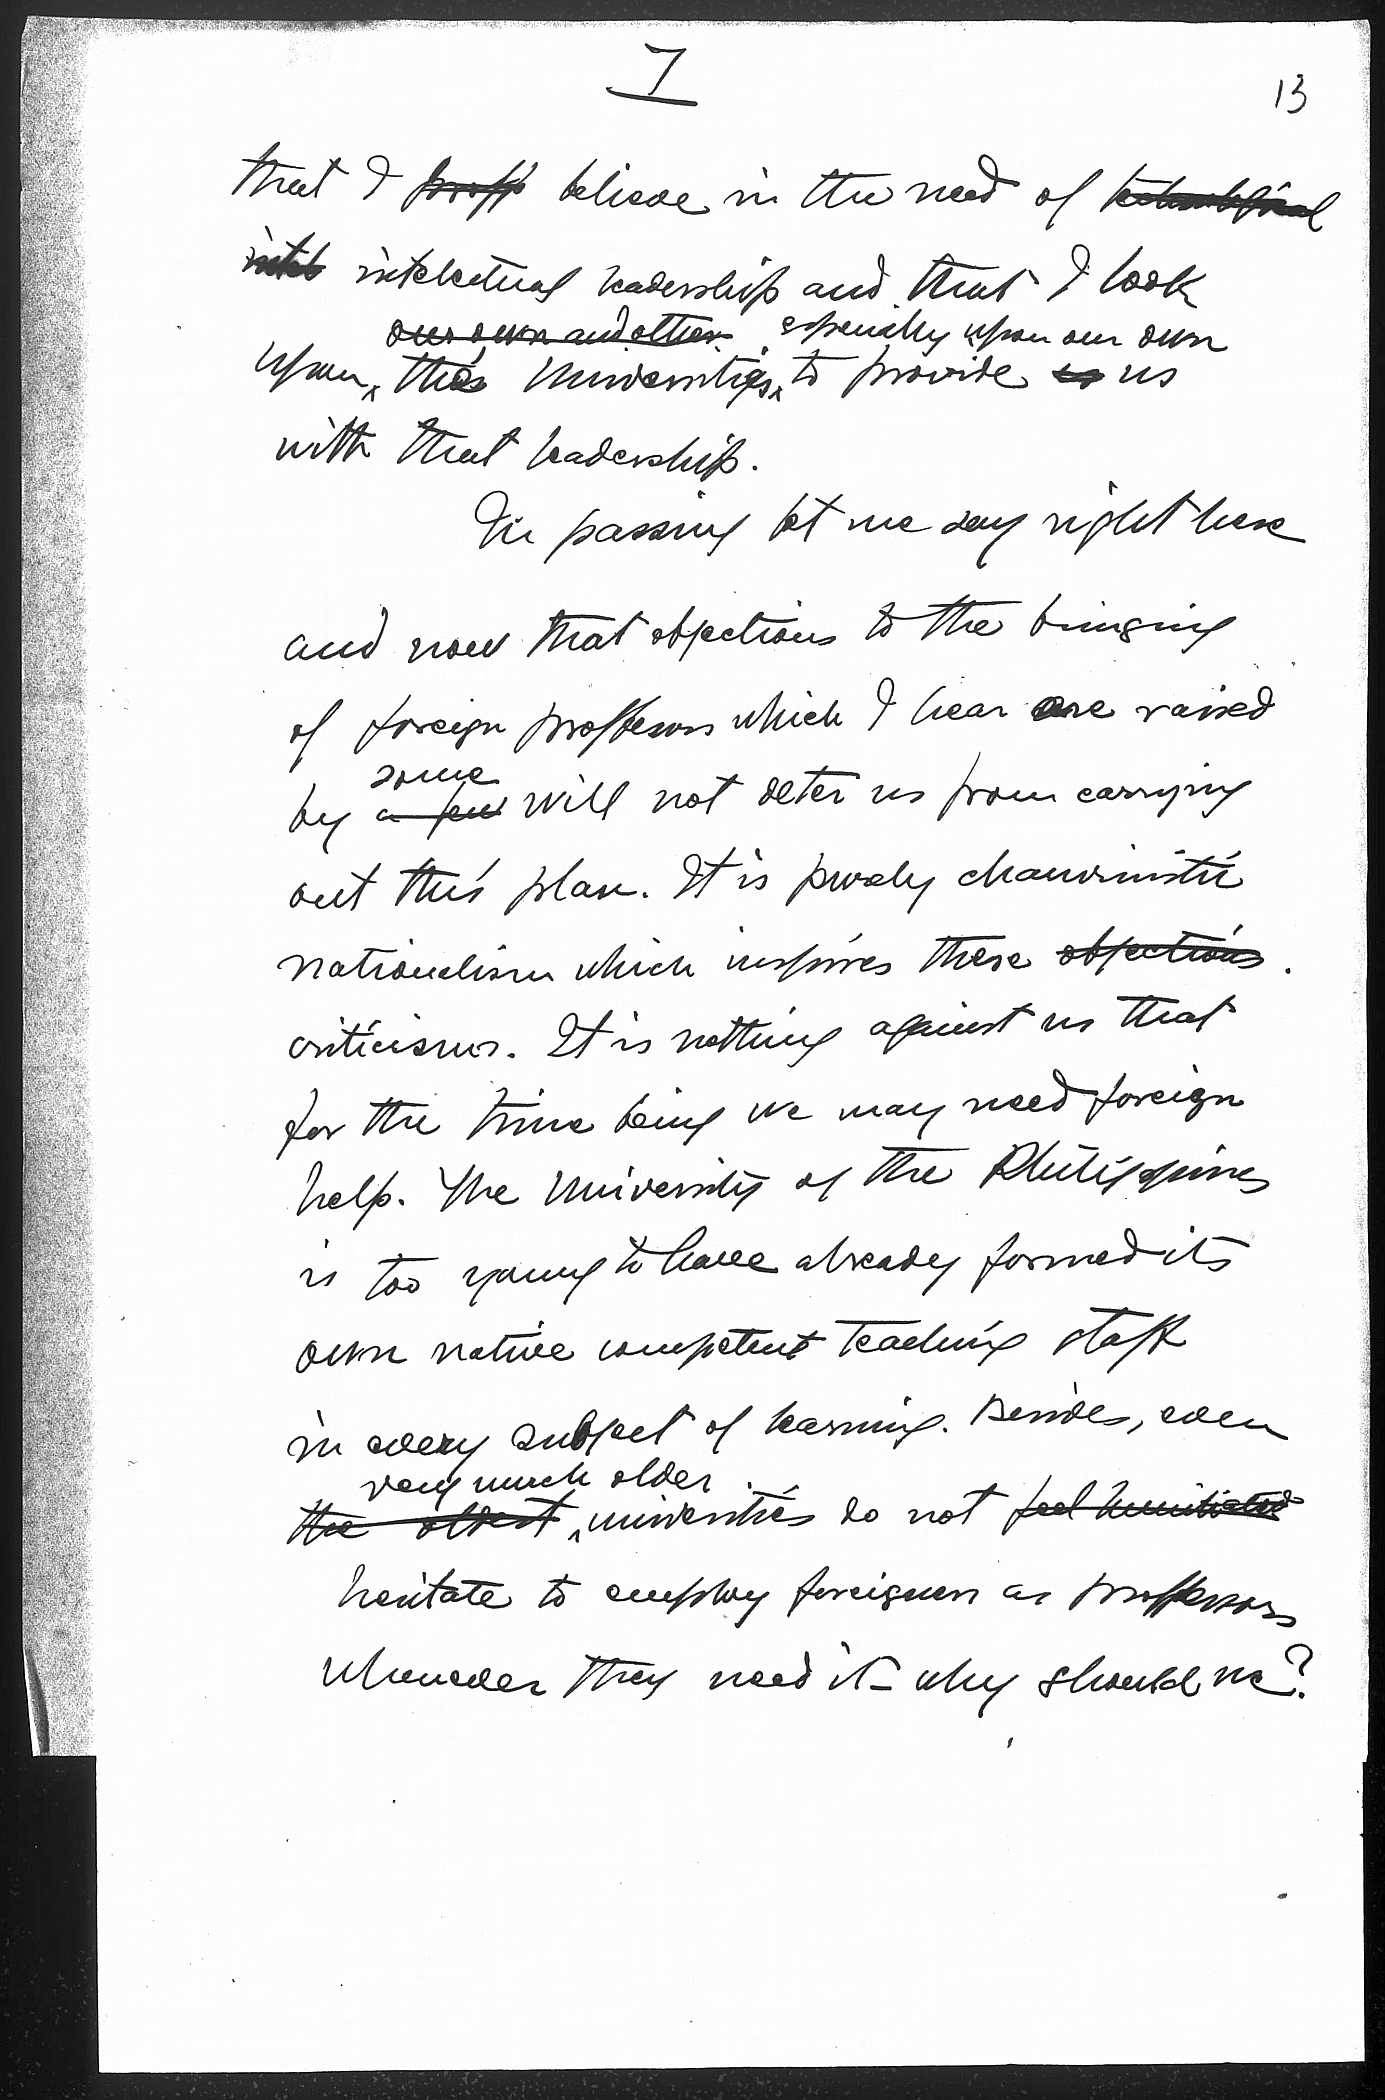 7
13
that I believe in the need of
intelectual leadership and that I look
our own and other especially upon our own
upon the Universities to provide us
with that leadership.
In passing let me say right here
and now that objections to the bringing
of foreign proffesors which I hear are raised
some
by a few will not deter us from carrying
out this plan. It is purely chauvinistic
nationalism which inspires these objections.
criticisms. It is nothing against us that
for the time being we may need foreign
help. The University of the Philippines
is too young to have already formed its
own native competent teaching staff
in every subject of learning. Besides, even
very much older
the oldest universities do not feel humiliated
hesitate to employ foreigners as proffesors
whenever they need it - why should we?